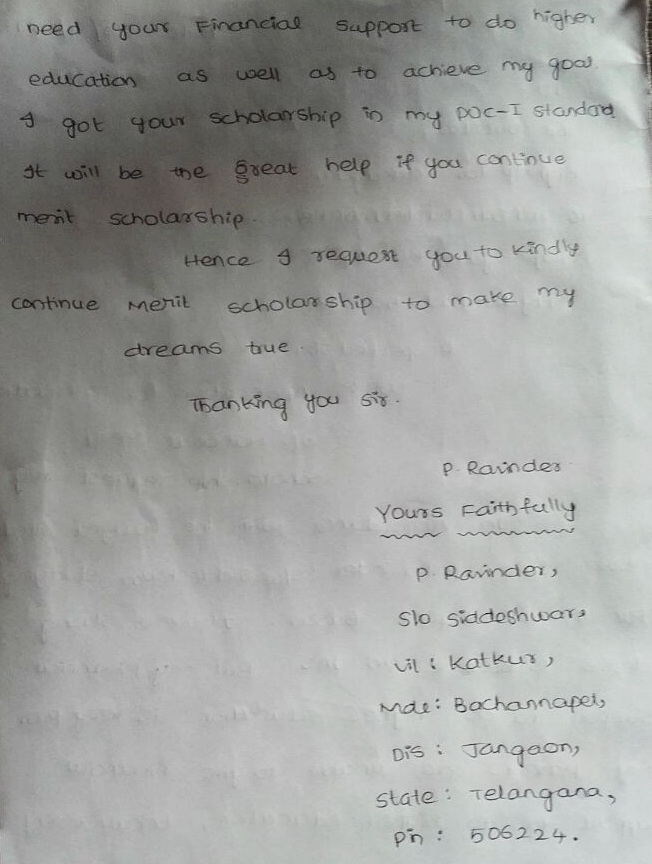 need your Financial support to do higher
education as well as to achieve my goal.
I got your scholarship in my POC-I standard
It will be the great help if you continue
merit scholarship.
Hence I request you to kindly
continue Merit scholarship to make my
dreams true.
Thanking you sir.
P. Ravinder
Yours Faithfully
P. Ravinder,
S/o Siddeshwar,
Vil : Katkur,
Mdl : Bachannapet,
Dis : Jangaon,
State : Telangana,
Pin : 506224.